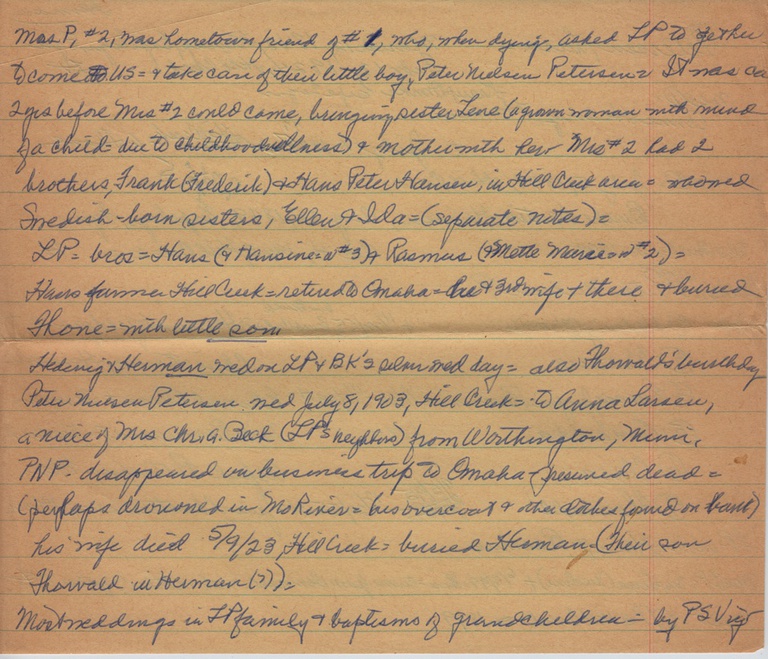 Mrs P, #2, was hometown friend of #1, who, when dying, asked LP to get her
to come to US = & take care of their little boy, Peter Nielsen Petersen = It was ca
2 yrs before Mrs #2 could come, bringing sister Lene (a grown woman with mind
of a child - due to childhood illness) & mother with her Mrs #2 had 2
brothers, Frank (Frederik) & Hans Peter Hansen, in Hill Creek area = who wed
Swedish-born sisters, Ellen & Ida = (separate notes) =
LP = bros = Hans (& Hansine = w #3) & Rasmus (& Mette Marie = w #2) =
Hans farmer Hill Creek = retired to Omaha = he & 3rd wife + there & buried
with little son
Hedwig & Herman wed on LP & BK's silver wed day = also Thorvald's birthday
Peter Nielsen Petersen wed July 8, 1903, Hill Creek = to Anna Larsen,
a niece of Mrs Chr. A. Beck (LP's neighbors) from Worthington, Minn.
PNP - disappeared on business trip to Omaha - presumed dead =
(perhaps drowned in Mo River = his overcoat & other clothes found on bank)
his wife died 5/9/23, Hill Creek = buried Herman (Their son
Thorvald in Herman (?)) =
Most weddings in LP family & baptisms of grandchildren = by PS Vig